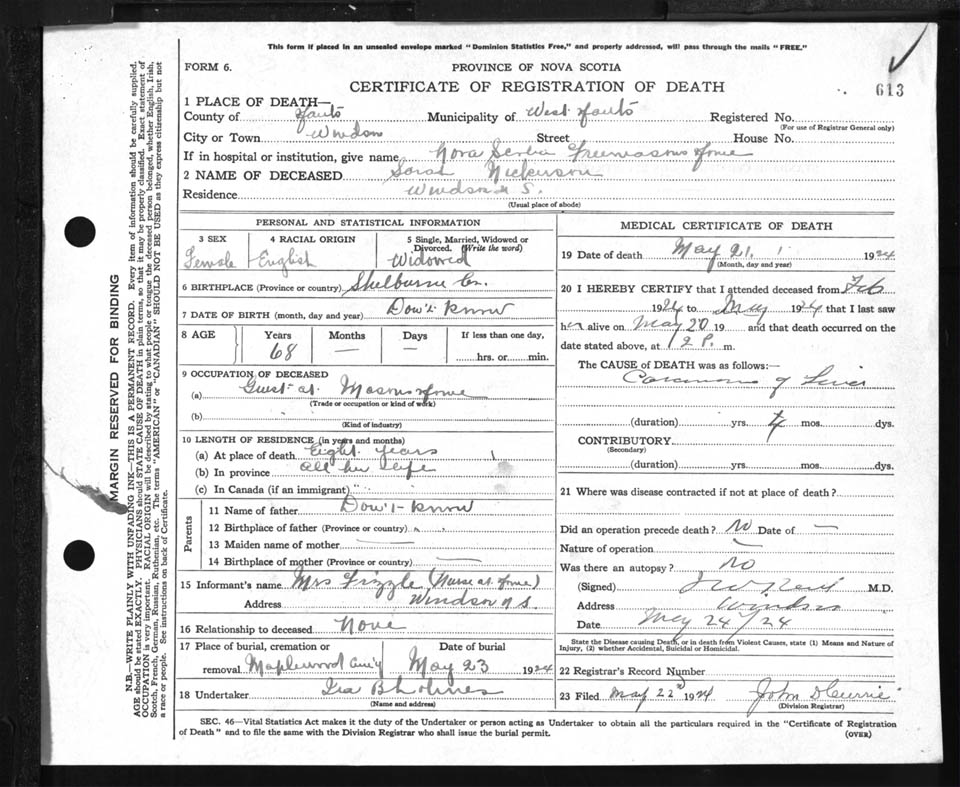 This form if placed in an unsealed envelope marked "Dominion Statistics Free," and properly addressed, will pass through the mails "FREE."
FORM 6.
PROVINCE OF NOVA SCOTIA
CERTIFICATE OF REGISTRATION OF DEATH
613
1 PLACE OF DEATH—
County of Hants Municipality of West Hants Registered No.
(For use of Registrar General only)
City or Town Windsor Street House No.
If in hospital or institution, give name Nova Scotia Freemasons Home
2 NAME OF DECEASED Sarah Nickerson
Residence Windsor N S.
(Usual place of abode)
PERSONAL AND STATISTICAL INFORMATION
3 SEX 4 RACIAL ORIGIN 5 Single, Married, Widowed or Divorced. (Write the word)
Female English Widowed
6 BIRTHPLACE (Province or country) Shelburne Co.
7 DATE OF BIRTH (month, day and year) Don't know
8 AGE Years Months Days If less than one day,
68 — — hrs. or min.
9 OCCUPATION OF DECEASED
(a) Guest at Masons Home
(Trade or occupation or kind of work)
(b)
(Kind of industry)
10 LENGTH OF RESIDENCE (in years and months)
(a) At place of death Eight years
(b) In province all her life
(c) In Canada (if an immigrant) "
Parents
11 Name of father Don't know
12 Birthplace of father (Province or country) " "
13 Maiden name of mother —
14 Birthplace of mother (Province or country) —
15 Informant's name Mrs Frizzle (Nurse at Home)
Address Windsor N S.
16 Relationship to deceased None
17 Place of burial, cremation or Date of burial
removal Maplewood May 23 1924
18 Undertaker Ira B Holmes
(Name and address)
MEDICAL CERTIFICATE OF DEATH
19 Date of death May 21. 1924
(Month, day and year)
20 I HEREBY CERTIFY that I attended deceased from Feb
1924 to May 1924 that I last saw
her alive on May 20 19 and that death occurred on the
date stated above, at 12 P. m.
The CAUSE OF DEATH was as follows:—
Carcinoma of Liver
(duration) yrs. 4 mos. dys.
CONTRIBUTORY
(Secondary)
(duration) yrs. mos. dys.
21 Where was disease contracted if not at place of death?
Did an operation precede death? No Date of —
Nature of operation —
Was there an autopsy? No
(Signed) M.D.
Address Windsor
Date May 24/24
State the Disease causing Death, or in death from Violent Causes, state (1) Means and Nature of
Injury, (2) whether Accidental, Suicidal or Homicidal.
22 Registrar's Record Number
23 Filed May 22nd 1924 John D Currie
(Division Registrar)
SEC. 46—Vital Statistics Act makes it the duty of the Undertaker or person acting as Undertaker to obtain all the particulars required in the "Certificate of Registration
of Death" and to file the same with the Division Registrar who shall issue the burial permit.
(OVER)
MARGIN RESERVED FOR BINDING
N.B.—WRITE PLAINLY WITH UNFADING INK—THIS IS A PERMANENT RECORD. Every item of information should be carefully supplied.
AGE should be stated EXACTLY. PHYSICIANS should STATE CAUSE OF DEATH in plain terms, so that it may be properly classified. Exact statement of
OCCUPATION is very important. RACIAL ORIGIN will be described by stating to what people or tongue the deceased person belonged, whether English, Irish,
Scotch, French, German, Russian, Ruthenian, etc. The terms "AMERICAN" or "CANADIAN" SHOULD NOT BE USED as they express citizenship but not
a race or people. See instructions on back of Certificate.